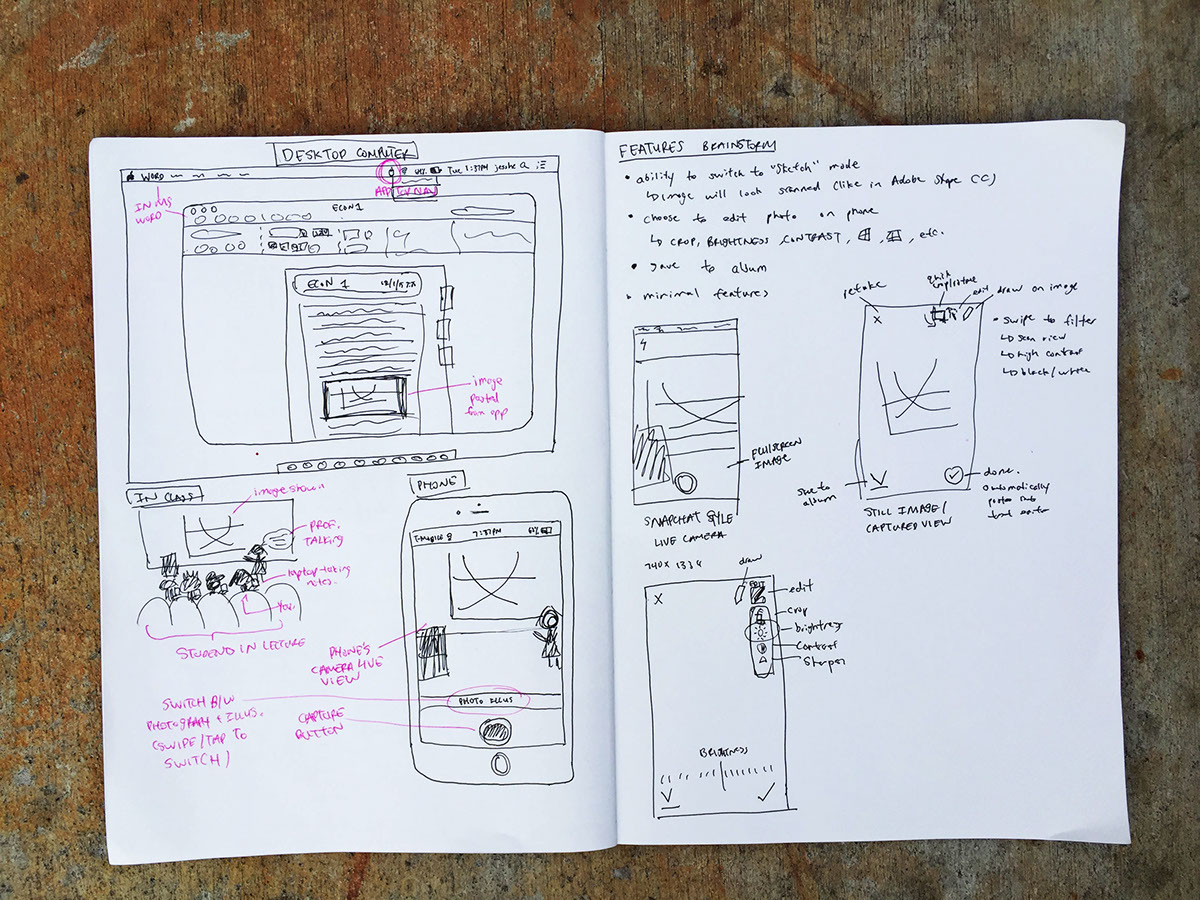 DESKTOP COMPUTER
WORD
Tue 1:37PM jessike
APP TOP NAV
IN MS
WORD
ECON 1
ECON 1
image
pasted
from app
IN CLASS
image shown
PROF.
TALKING
laptop taking
notes.
You.
STUDENT IN LECTURE
PHONE
T-MOBILE
7:37PM
PHONE'S
CAMERA LIVE
VIEW
PHOTO ILLUS
SWITCH B/W
PHOTOGRAPH + ILLUS.
(SWIPE/TAP TO
SWITCH)
CAPTURE
BUTTON
FEATURES BRAINSTORM
• ability to switch to "sketch" mode
↳ image will look scanned (like in Adobe Shape CC)
• choose to edit photo on phone
↳ CROP, BRIGHTNESS, CONTRAST, , , etc.
• save to album
• minimal features
FULLSCREEN
IMAGE
SNAPCHAT STYLE
LIVE CAMERA
retake
X
quick
edit
draw on image
• swipe to filter
↳ scan view
↳ high contrast
↳ black/white
save to
album
done.
automatically
pastes into
text editor
STILL IMAGE/
CAPTURED VIEW
740 x 1334
draw
X
EDIT
edit
crop
brightness
contrast
sharpen
BRIGHTNESS